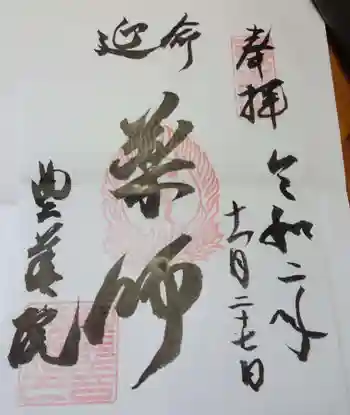 奉拝
令和二年
十一月二十七日
延命
薬師